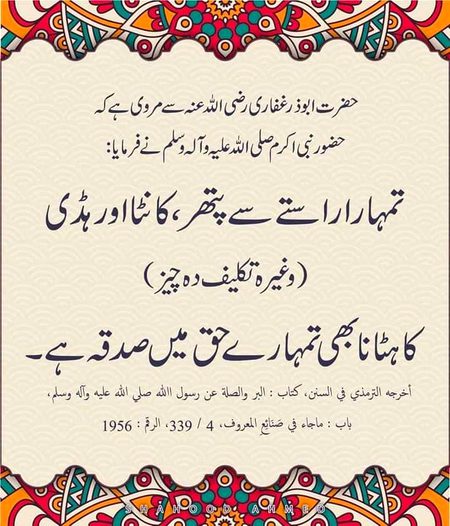 حضرت ابوذر غفاری رضی اللہ عنہ سے مروی ہے کہ
حضور نبی اکرم صلی اللہ علیہ و آلہ وسلم نے فرمایا:
تمہارا راستے سے پتھر، کانٹا اور ہڈی
(وغیرہ تکلیف دہ چیز)
کا ہٹانا بھی تمہارے حق میں صدقہ ہے۔
أخرجه الترمذي في السنن، كتاب : البر والصلة عن رسول الله صلي الله عليه وآله وسلم،
باب : ماجاء في صَنَائِعِ المعروف، 4 / 339، الرقم : 1956
SHAHOOD AHMED